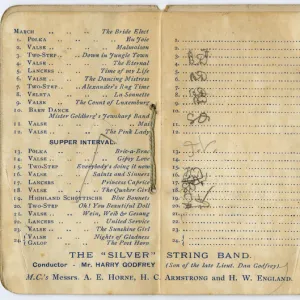 MARCH The Bride Elect
1. POLKA En Joie
2. VALSE
3. TWO-STEP Down in Jungle Town
4. VALSE The Eternal
5. LANCERS Time of my Life
6. VALSE The Dancing Mistress
7. TWO-STEP Alexander's Rag Time
8. VELETA La Sonnette
9. VALSE The Count of Luxemburg
10. BARN DANCE
Mister Goldberg's Band
11. VALSE
12. VALSE The Pink Lady
SUPPER INTERVAL.
13. POLKA Bric-a-Brac
14. VALSE Gipsy Love
15. TWO-STEP Everybody's doing it now
16. VALSE Saints and Sinners
17. LANCERS Princess Caprice
18. VALSE The Quaker Girl
19. HIGHLAND SCHOTTISCHE Blue Bonnets
20. TWO-STEP Oh! You Beautiful Doll
21. VALSE Wein, Weib & Gesang
22. LANCERS United Service
23. VALSE The Sunshine Girl
24. VALSE Nights of Gladness
GALOP The Post Horn
1.
2.
3.
4.
5.
6.
7.
8.
9.
10.
11.
12.
13.
14.
15.
16.
17.
18.
19.
20.
21.
22.
23.
24.
THE "SILVER" STRING BAND.
Conductor - Mr. HARRY GODFREY (Son of the late Lieut. Dan Godfrey)
M.C.'s Messrs. A. E. HORNE, H. C. ARMSTRONG and H. W. ENGLAND.